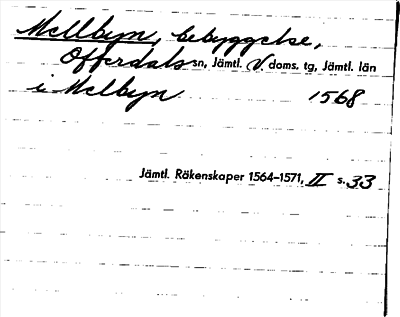 Mellbyn, bebyggelse,
Offerdals sn, Jämtl. V doms. tg, Jämtl. län
i Melbyn 1568
Jämtl. Räkenskaper 1564–1571, II s. 33